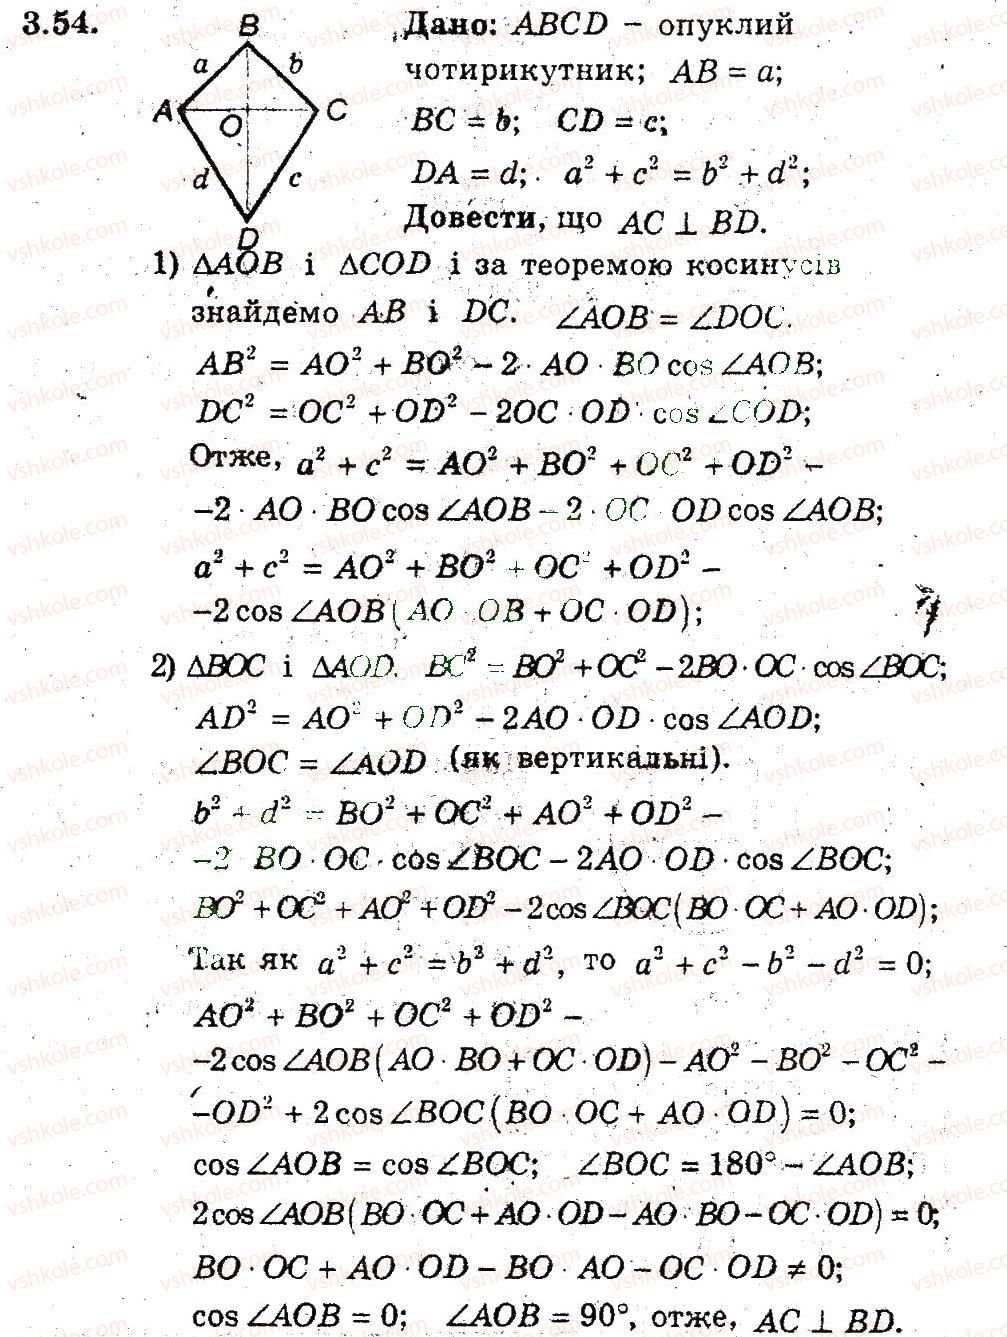 3.54.
B
a b
A O C
d c
D
Дано: ABCD – опуклий
чотирикутник; AB = a;
BC = b; CD = c;
DA = d; a² + c² = b² + d²;
Довести, що AC ⊥ BD.
1) ΔAOB і ΔCOD і за теоремою косинусів
знайдемо AB і DC. ∠AOB = ∠DOC.
AB² = AO² + BO² – 2 · AO · BO cos ∠AOB;
DC² = OC² + OD² – 2OC · OD · cos ∠COD;
Отже, a² + c² = AO² + BO² + OC² + OD² –
–2 · AO · BO cos ∠AOB – 2 · OC OD cos ∠AOB;
a² + c² = AO² + BO² + OC² + OD² –
–2 cos ∠AOB(AO · OB + OC · OD);
2) ΔBOC і ΔAOD. BC² = BO² + OC² – 2BO · OC · cos ∠BOC;
AD² = AO² + OD² – 2AO · OD · cos ∠AOD;
∠BOC = ∠AOD (як вертикальні).
b² + d² = BO² + OC² + AO² + OD² –
–2 BO · OC · cos ∠BOC – 2AO · OD · cos ∠BOC;
BO² + OC² + AO² + OD² – 2 cos ∠BOC(BO · OC + AO · OD);
Так як a² + c² = b² + d², то a² + c² – b² – d² = 0;
AO² + BO² + OC² + OD² –
–2 cos ∠AOB(AO · BO + OC · OD) – AO² – BO² – OC² –
–OD² + 2 cos ∠BOC(BO · OC + AO · OD) = 0;
cos ∠AOB = cos ∠BOC; ∠BOC = 180° – ∠AOB;
2 cos ∠AOB(BO · OC + AO · OD – AO · BO – OC · OD) = 0;
BO · OC + AO · OD – BO · AO – OC · OD ≠ 0;
cos ∠AOB = 0; ∠AOB = 90°, отже, AC ⊥ BD.